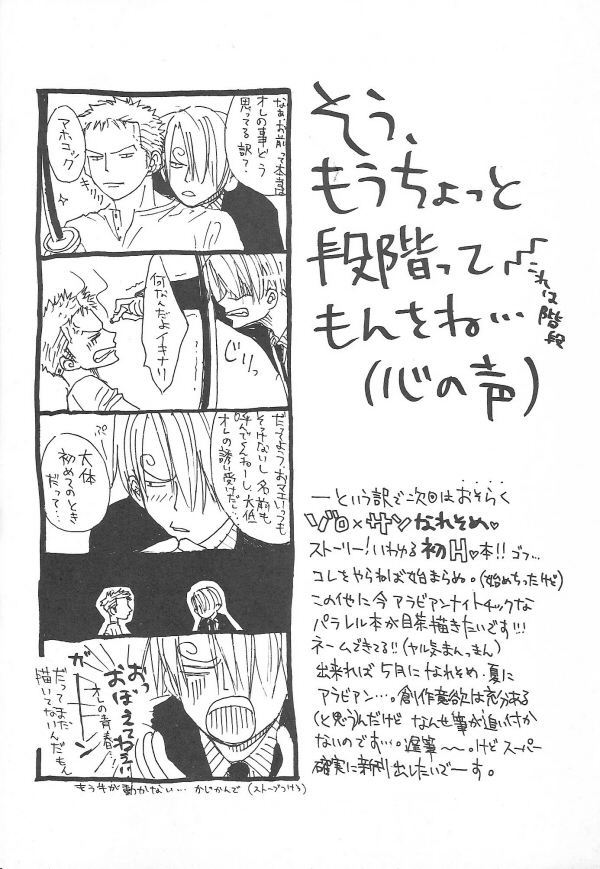 そう、
もうちょっと
段階って
これは階段
もんをね…
(心の声)
なぁ、お前って本当は
オレの事どう
思ってる訳?
アホコック
何なんだよイキナリ
じりっ
だってよう、おマエいっつも
そっけないし名前も
呼んでくんねーし、大体
オレの誘い受けだし…
ぷ
大体
初めてのとき
だって…
ガーン
おっ
おぼえてねぇ!!
オレの青春…!
だってまだ
描いてないんだもん
もう手が動かない…かじかんで(ストーブつけろ)
ーという訳で次回はおそらく
ゾロ×サンなれそめ♥
ストーリー!いわゆる初H♥本!!ゴフ…
コレをやらねば始まらぬ。(始めちったけど)
この他に今アラビアンナイトチックな
パラレル本が目茶描きたいです!!!
ネームできてる!!(ヤル気まんまん)
出来れば5月になれそめ、夏に
アラビアン…。創作意欲は充分ある
(と思う)んだけどなんせ筆が追い付か
ないのです…。遅筆〜〜。けどスーパー
確実に新刊出したいでーす。